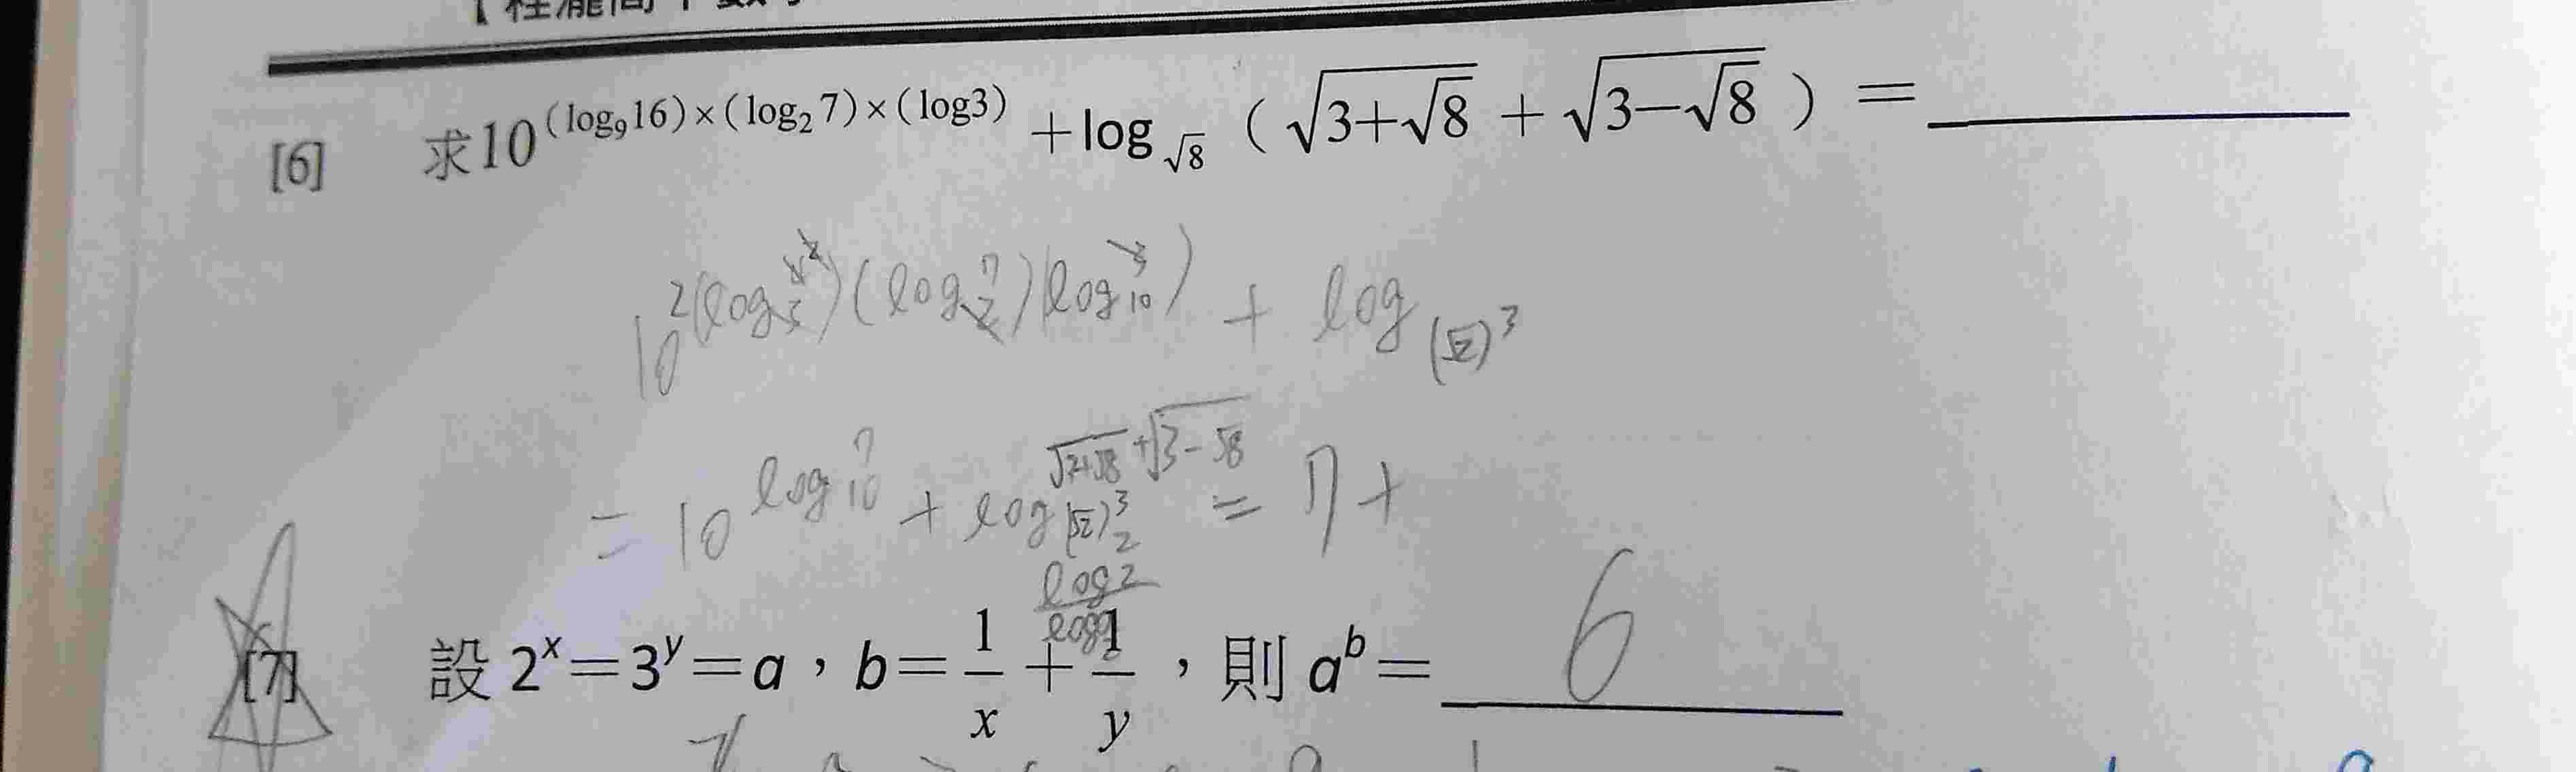 [6] 求10^(log₉16)×(log₂7)×(log3) + log_√8 (√(3+√8) + √(3−√8)) = ______
10^2(log)(log 7)(log₁₀) + log_(√2)³
= 10^log₁₀7 + log_(√2)³ √(3+√8) + √(3-√8) = 7 +
log2
[7] 設 2^x=3^y=a，b=1/x+1/y，則 a^b= 6